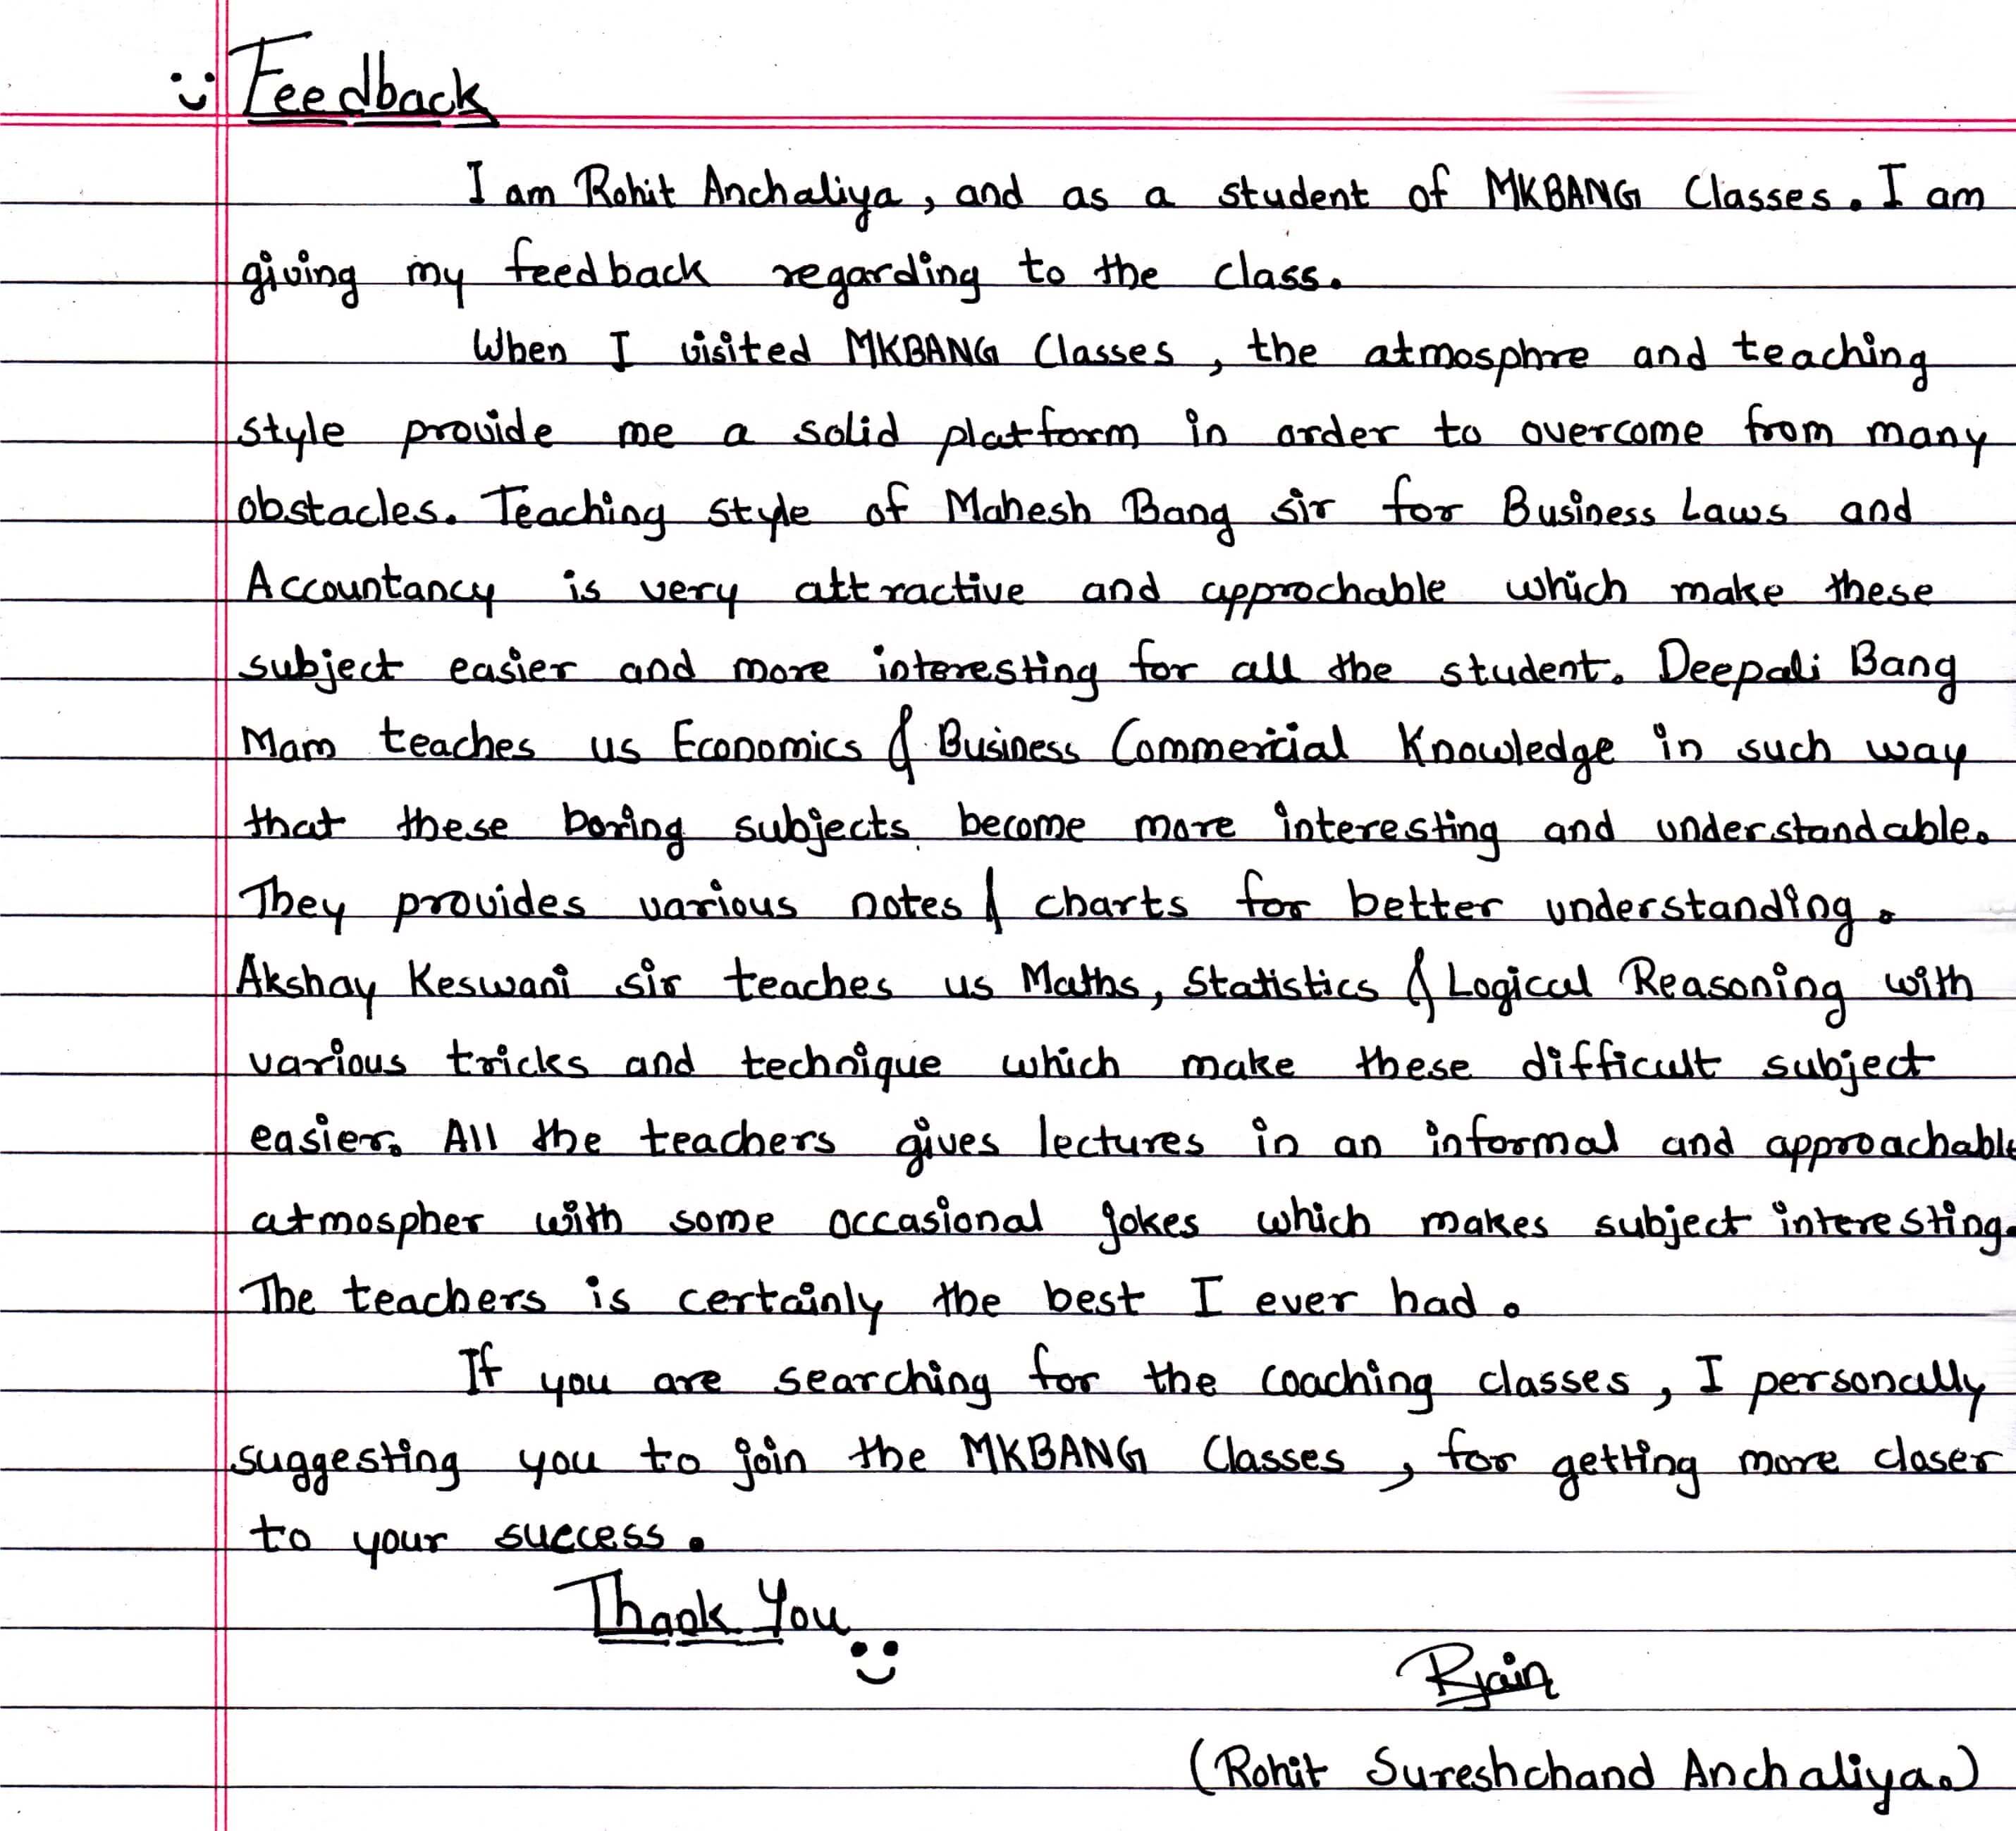 Feedback
I am Rohit Anchaliya, and as a student of MKBANG Classes. I am
giving my feedback regarding to the class.
When I visited MKBANG Classes, the atmosphre and teaching
style provide me a solid platform in order to overcome from many
obstacles. Teaching style of Mahesh Bang sir for Business Laws and
Accountancy is very attractive and approchable which make these
subject easier and more interesting for all the student. Deepali Bang
Mam teaches us Economics & Business Commercial Knowledge in such way
that these boring subjects become more interesting and understandable.
They provides various notes & charts for better understanding.
Akshay Keswani sir teaches us Maths, Statistics & Logical Reasoning with
various tricks and technique which make these difficult subject
easier. All the teachers gives lectures in an informal and approachable
atmospher with some occasional jokes which makes subject interesting.
The teachers is certainly the best I ever had.
If you are searching for the coaching classes, I personally
suggesting you to join the MKBANG Classes, for getting more closer
to your success.
Thank You
Rjain
(Rohit Sureshchand Anchaliya.)